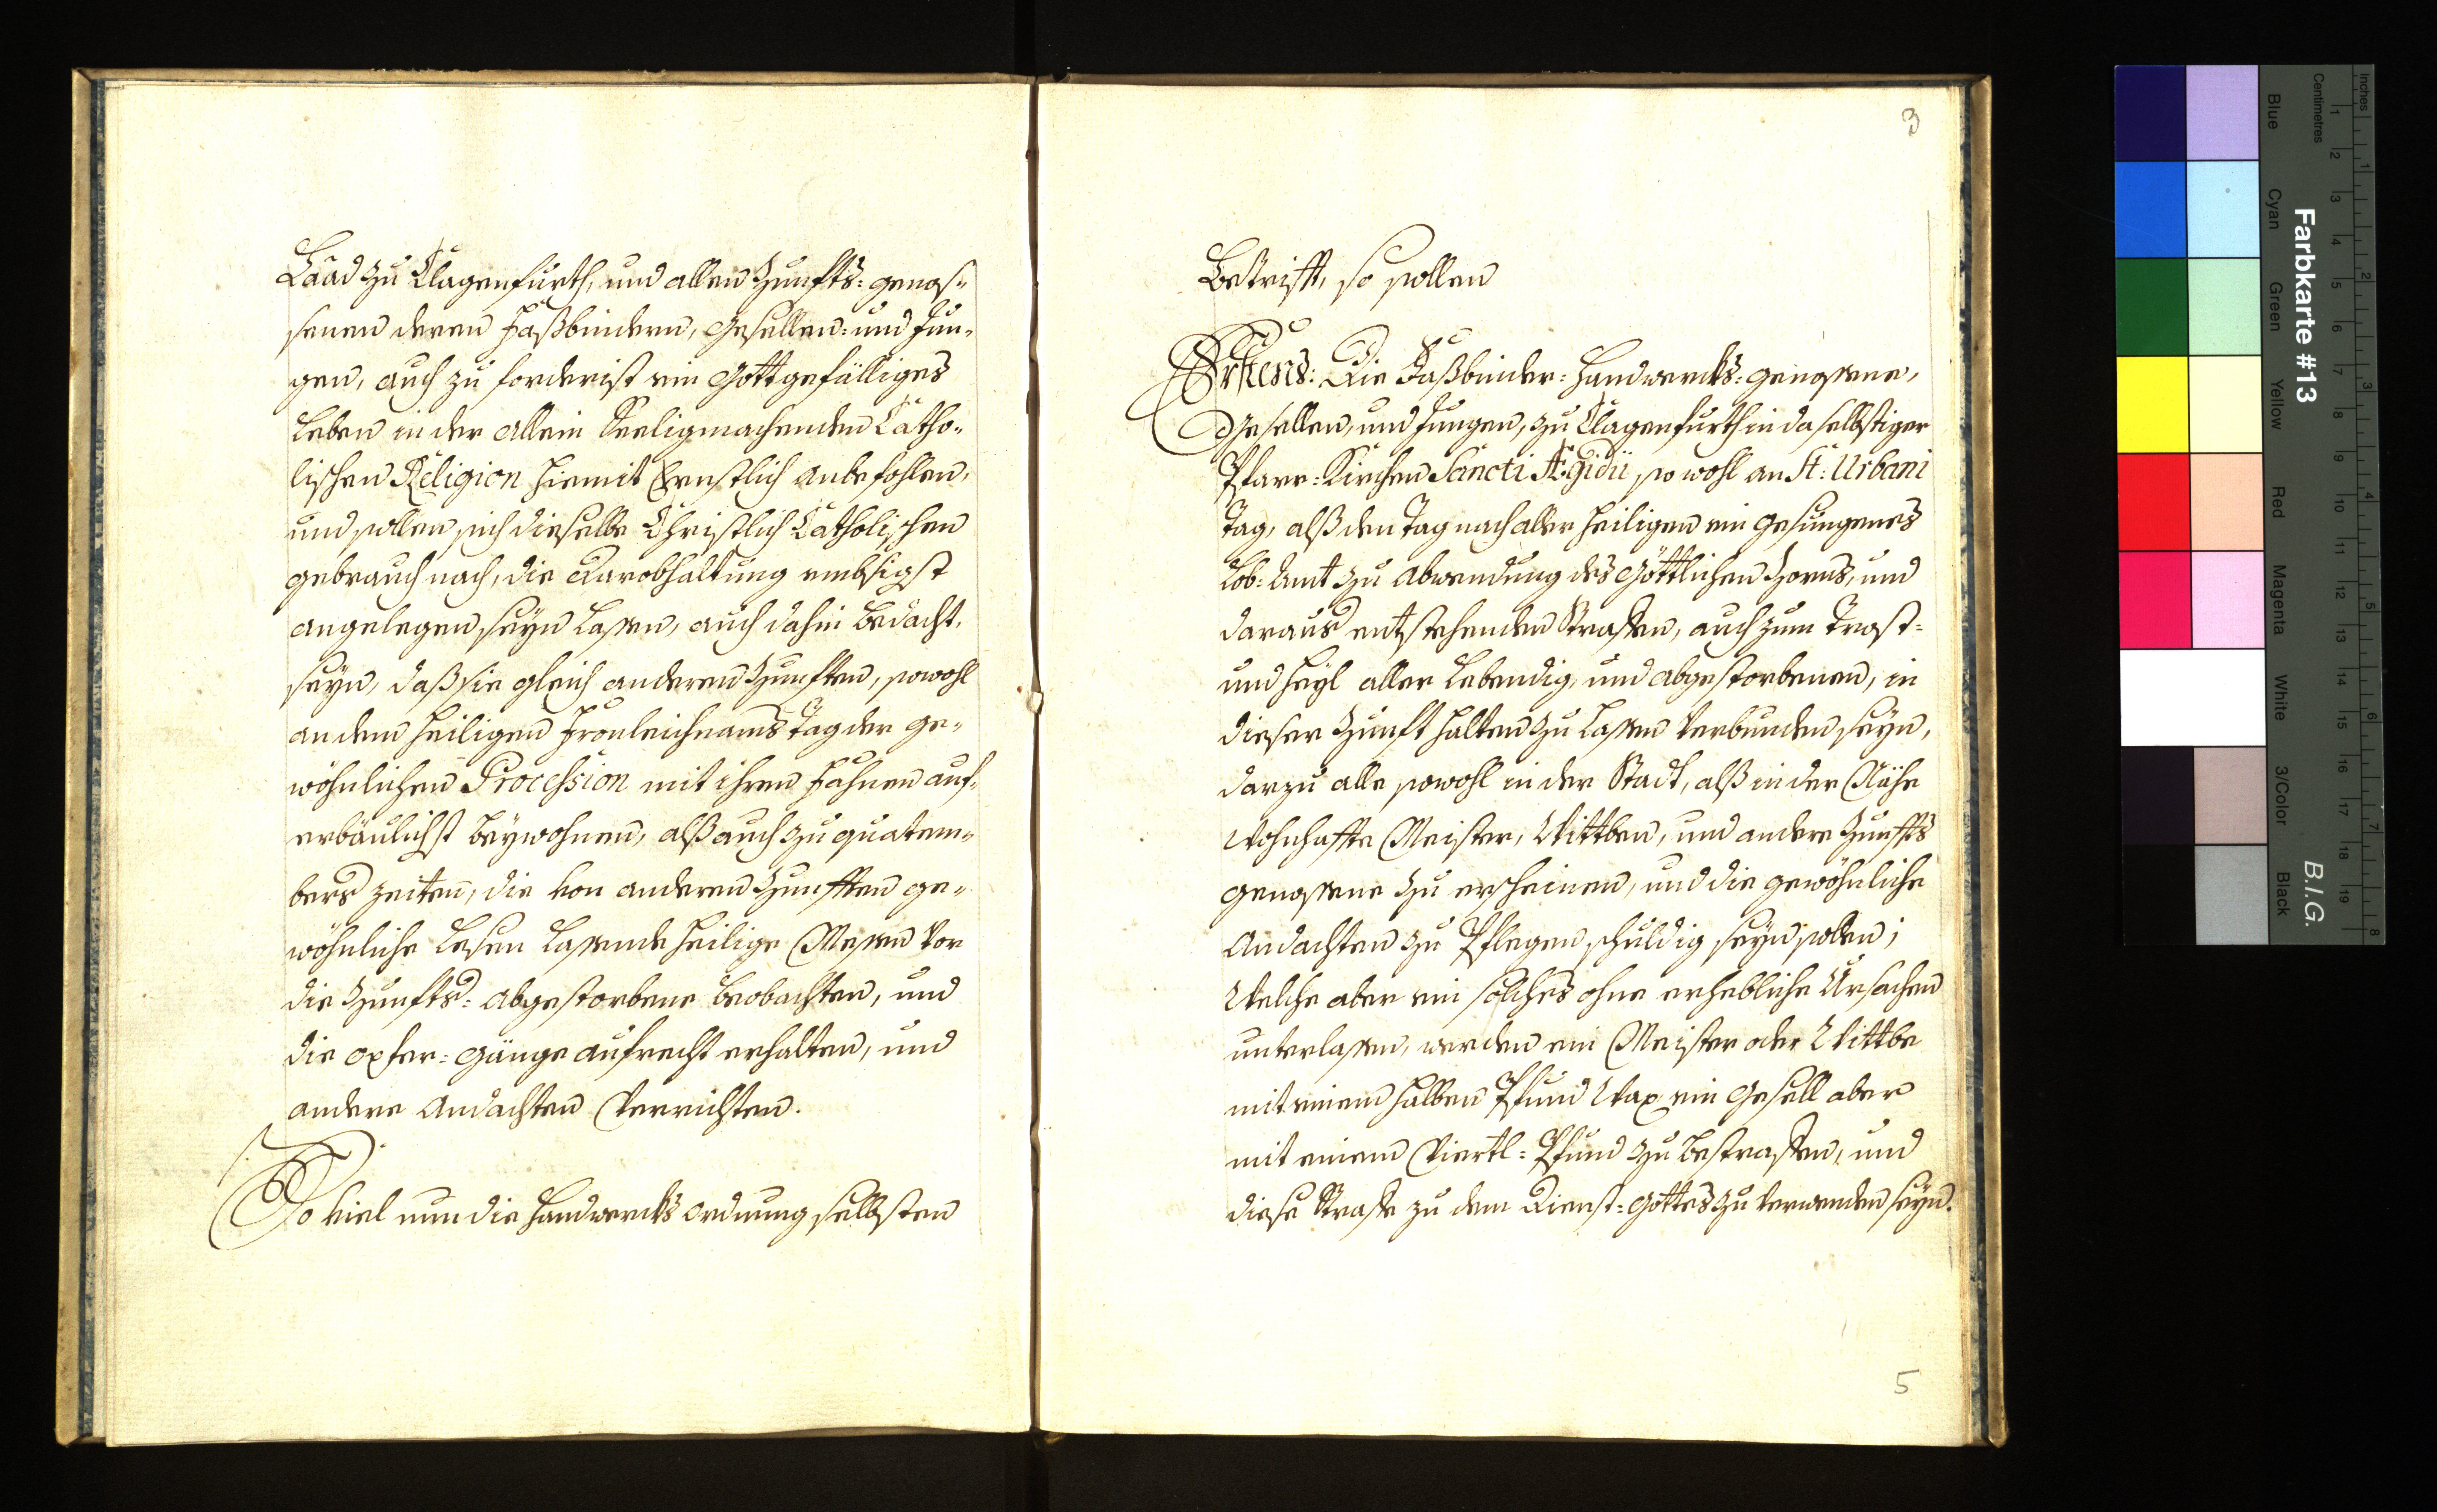 Laad zu Clagenfurth, und allen Zunfts-genos-
senen deren Faßbindern, Gesellen- und Jun-
gen, auch zu forderist ein Gott gefälliges
Leben in der allein Seeligmachenden Catho-
lischen Religion hiemit Ernstlich anbefohlen,
und sollen sich dieselbe Christlich Catholischen
gebrauch nach, die Darobhaltung embsigst
angelegen seyn lassen, auch dahin bedacht
seyn, daß sie gleich anderen Zunfften, sowohl
an dem heiligen Fronleichnams Tag der ge-
wöhnlichen Procession mit ihren Fahnen auf-
erbäulichst beywohnen, alß auch zu quatem-
bers zeiten, die von anderen Zunfften ge-
wöhnliche Lesen lassende heilige Messen vor
die Zunfts-abgestorbene beobachten, und
die opfer-gänge aufrecht erhalten, und
andere Andachten verrichten.
So viel nun die Handwercks ordnung selbsten
3
Betrifft, so sollen
Erstens: Die Faßbinder-Handwercks-genossene,
Gesellen, und Jungen, zu Clagenfurth in daselbstiger
Pfarr-Kirchen Sancti Ægidii so wohl an St: Urbani
Tag, alß den Tag nach aller heiligen ein gesungenes
Lob-Amt zu abwendung des Göttlichen Zorns, und
daraus entstehenden Straffen, auch zum Trost-
und heyl aller Lebendig, und abgestorbenen, in
dieser Zunft halten zu lassen verbunden seyn,
darzu alle sowohl in der Stadt, alß in der Nähe
wohnhaffte Meister, Wittben, und andere Zunffts
genossene zu erscheinen, und die gewöhnliche
Andachten zu Pflegen schuldig seyn sollen;
Welche aber ein solches ohne erhebliche Ursachen
unterlassen, werden ein Meister oder Wittbe
mit einem halben Pfund Wax, ein Gesell aber
mit einem Viertl-Pfund zu bestraffen, und
diese Straffe zu dem Dienst-Gottes zu verwenden seyn.
5
Inches
Centimetres
Farbkarte #13
B.I.G.
Blue
Cyan
Green
Yellow
Red
Magenta
White
3/Color
Black
1 2 3 4 5 6 7 8
1 2 3 4 5 6 7 8 9 10 11 12 13 14 15 16 17 18 19